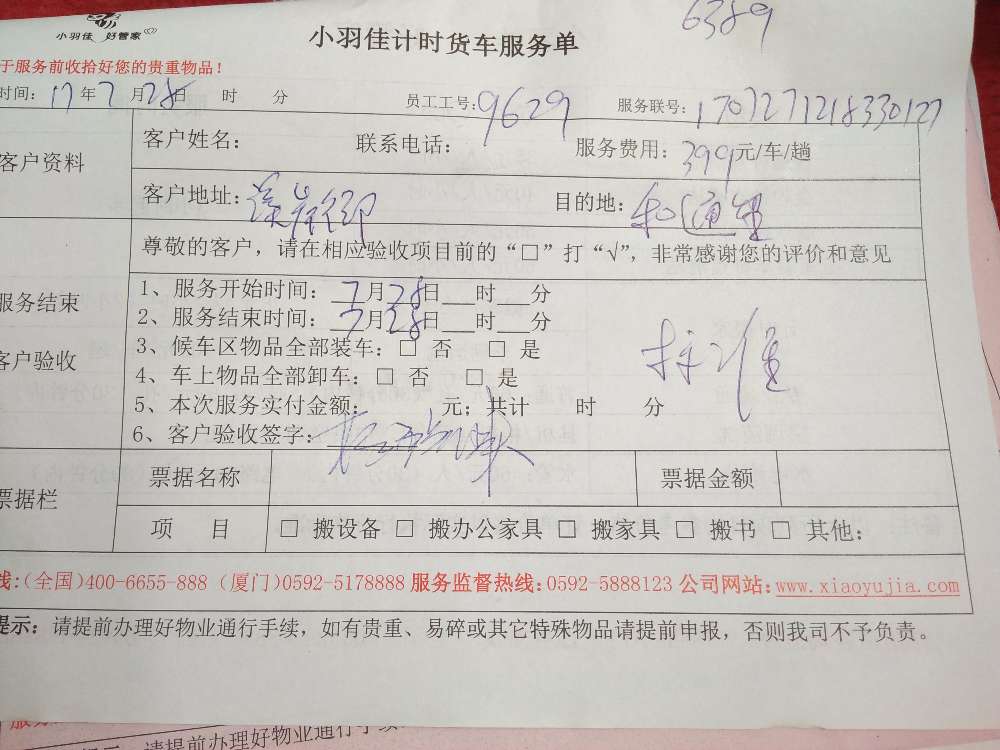 6389
小羽佳 好管家
小羽佳计时货车服务单
于服务前收拾好您的贵重物品！
时间：17年7月28日 时 分 员工工号：9629 服务联号：1707271218330127
客户资料
客户姓名： 联系电话： 服务费用：399元/车/趟
客户地址： 目的地：和通里
尊敬的客户，请在相应验收项目前的“□”打“√”，非常感谢您的评价和意见
服务结束
客户验收
1、服务开始时间：7月28日___时___分
2、服务结束时间：7月28日___时___分
3、候车区物品全部装车：□ 否 □ 是
4、车上物品全部卸车：□ 否 □ 是
5、本次服务实付金额： 元；共计 时 分
6、客户验收签字：
票据栏
票据名称 票据金额
项 目 □ 搬设备 □ 搬办公家具 □ 搬家具 □ 搬书 □ 其他：
线：（全国）400-6655-888（厦门）0592-5178888 服务监督热线：0592-5888123 公司网站：www.xiaoyujia.com
提示：请提前办理好物业通行手续，如有贵重、易碎或其它特殊物品请提前申报，否则我司不予负责。
请提前办理好物业通行手续